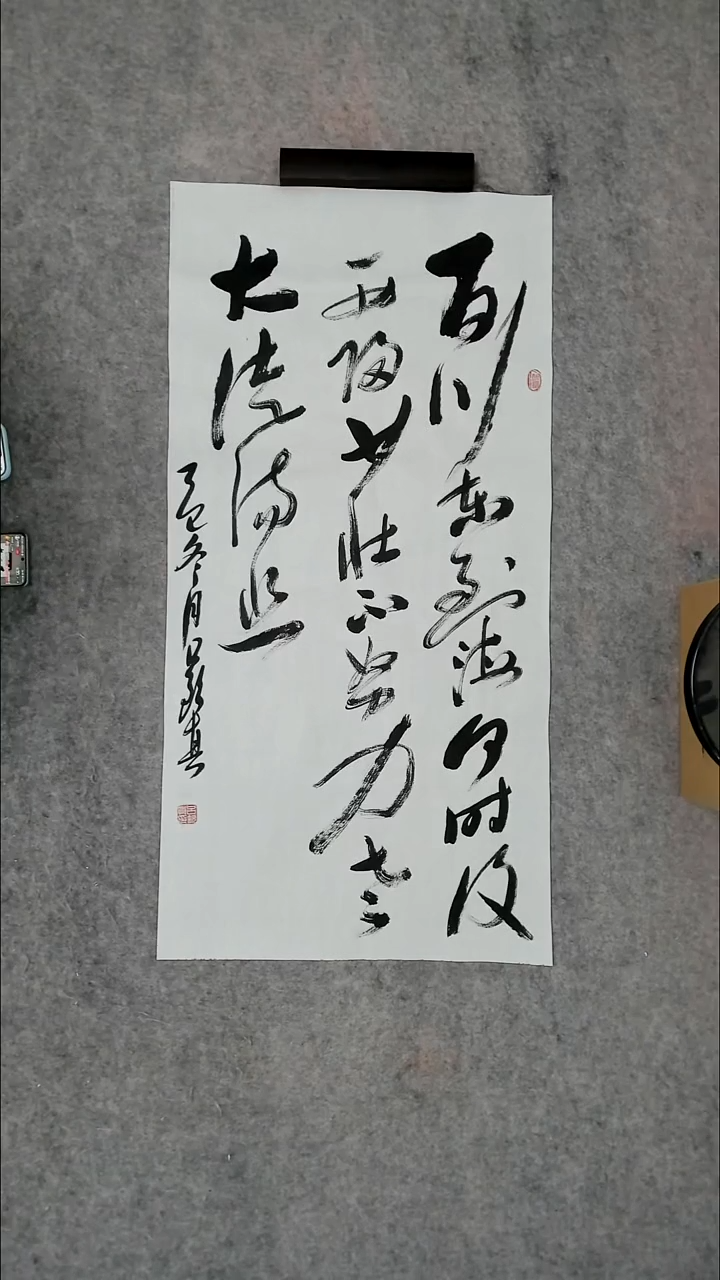 百川东到海何时復
西归少壮不努力老
大徒伤悲
乙巳冬月